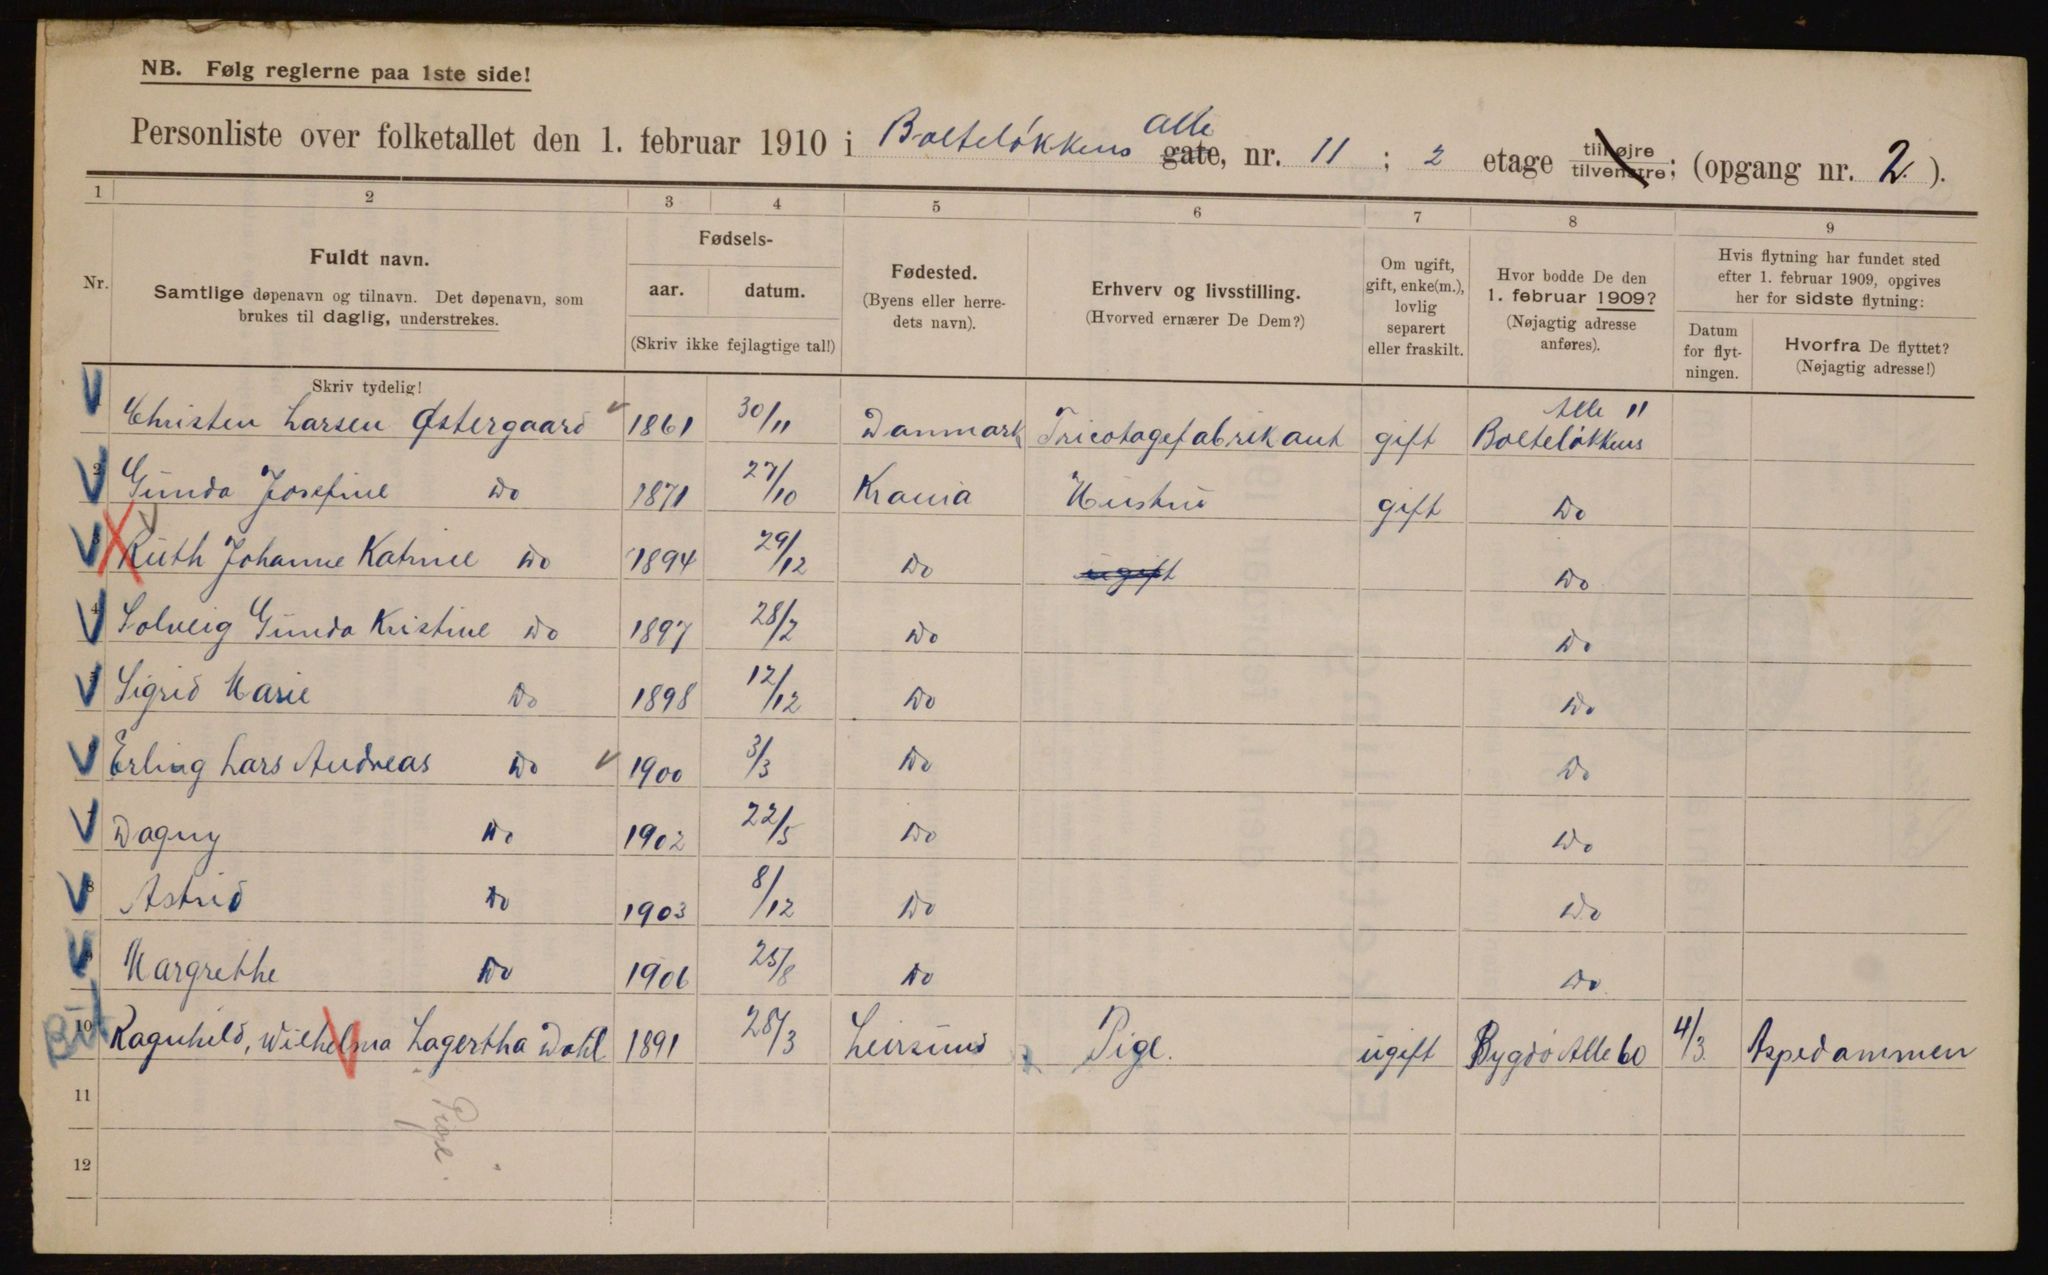 NB. Følg reglerne paa 1ste side!
Personliste over folketallet den 1. februar 1910 i Bolteløkkens Alle gate, nr. 11 ; 2 etage tilhøjre tilvenstre; (opgang nr. 2. ).
1 2 3 4 5 6 7 8 9
Nr.
Fuldt navn.
Samtlige døpenavn og tilnavn. Det døpenavn, som
brukes til daglig, understrekes.
Skriv tydelig!
Fødsels-
aar. datum.
(Skriv ikke fejlagtige tal!)
Fødested.
(Byens eller herre-
dets navn).
Erhverv og livsstilling.
(Hvorved ernærer De Dem?)
Om ugift,
gift, enke(m.),
lovlig
separert
eller fraskilt.
Hvor bodde De den
1. februar 1909?
(Nøjagtig adresse
anføres).
Hvis flytning har fundet sted
efter 1. februar 1909, opgives
her for sidste flytning:
Datum
for flyt-
ningen.
Hvorfra De flyttet?
(Nøjagtig adresse!)
Christen Larsen Østergaard 1861 30/11 Danmark Tricotagefabrikant gift Bolteløkkens Alle 11
2 Gunda Josefine Do 1871 27/10 Krania Hustru gift Do
Ruth Johanne Katrine Do 1894 29/12 Do ugift Do
4 Solveig Gunda Kristine Do 1897 28/2 Do Do
Sigrid Marie Do 1898 12/12 Do Do
Erling Lars Andreas Do 1900 3/3 Do Do
7 Dagny Do 1902 22/5 Do Do
8 Astrid Do 1903 8/12 Do Do
Margrethe Do 1906 25/8 Do Do
10 Ragnhild, Wilhelma Lagertha Dahl 1891 28/3 Leirsund Pige. ugift Bygdø Alle 60 4/3. Aspedammen
11
Pige.
12